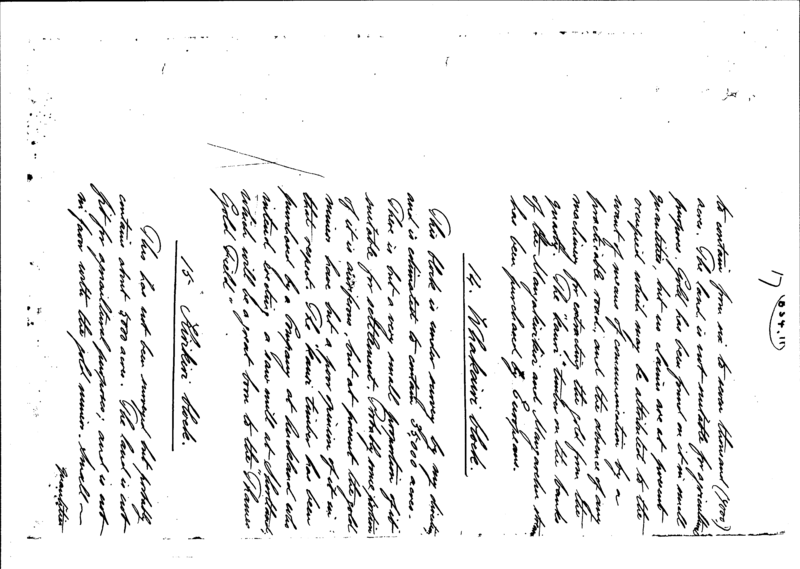 17
to contain from six to seven thousand (7000)
acres. The land is not suitable for agricultural
purposes. Gold has been found on it in small
quantities, but no claims are at present
occupied which may be attributed to the
want of means of communication by a
practicable road, and the absence of any
machinery for extracting the gold from the
quartz. The "Kauri" timber on the banks
of the and streams
has been purchased by Europeans.
14. Whakairi block.
This block is under survey by my direction
and is estimated to contain 35,000 acres.
There is but a very small proportion of it
suitable for settlement. Probably some portion
of it is auriferous, but at present the gold
miners have but a poor opinion of it in
that respect. The "Kauri" timber has been
purchased by a Company at Auckland who
intend erecting a Saw mill at Shortland,
which will be a great boon to the "Thames
Gold Field."
15 block.
This has not been surveyed but probably
contains about 5000 acres. The land is not
fit for agricultural purposes, and is not
in favor with the gold miners. Small
quantities